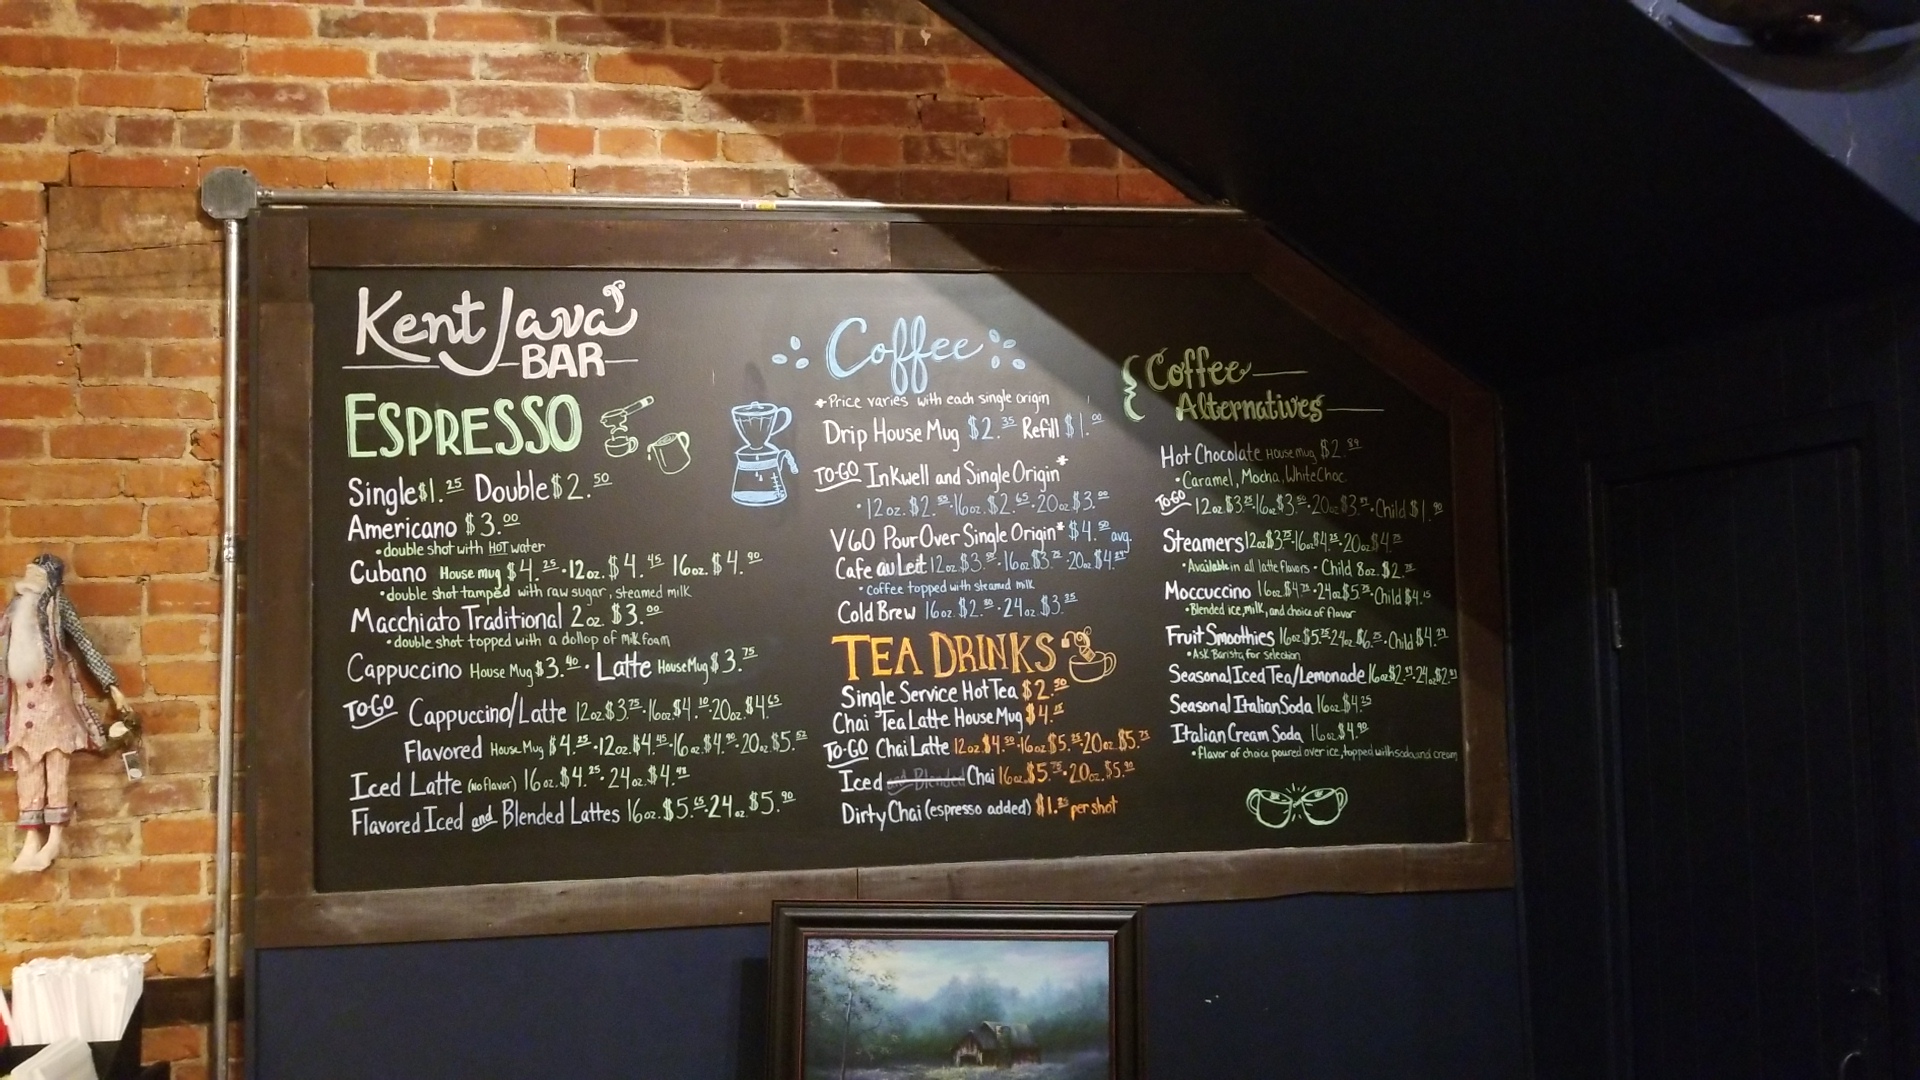 Kent Java
BAR
ESPRESSO
Single $1.25 Double $2.50
Americano $3.00
• double shot with HOT water
Cubano House mug $4.25 • 12oz. $4.45 16oz. $4.90
• double shot tamped with raw sugar, steamed milk
Macchiato Traditional 2oz $3.00
• double shot topped with a dollop of milk foam
Cappuccino House Mug $3.40 • Latte House Mug $3.75
TO-GO Cappuccino/Latte 12oz $3.75 • 16oz $4.10 • 20oz. $4.65
Flavored House Mug $4.25 • 12oz. $4.45 • 16oz $4.90 • 20oz $5.
Iced Latte (No flavor) 16oz $4.25 • 24oz. $4.
Flavored Iced and Blended Lattes 16oz. $5.65 • 24oz. $5.90
Coffee
*Price varies with each single origin
Drip House Mug $2.35 Refill $1.00
TO-GO Inkwell and Single Origin*
• 12oz. $2. • 16oz. $2.65 • 20oz. $3.00
V60 Pour Over Single Origin* $4.50 avg.
Cafe au Leit 12oz. $3. • 16oz. $3.75 • 20oz. $4.
• coffee topped with steamed milk
Cold Brew 16oz. $2. • 24oz. $3.
TEA DRINKS
Single Service Hot Tea $2.50
Chai Tea Latte House Mug $4.
TO-GO Chai Latte 12oz $4.50 • 16oz $5.25 • 20oz. $5.75
Iced and Blended Chai 16oz. $5. • 20oz. $5.
Dirty Chai (espresso added) $1. per shot
Coffee
Alternatives
Hot Chocolate House mug $2.89
• Caramel, Mocha, White Choc
TO-GO 12oz $3.25 • 16oz $3. • 20oz $3. • Child $1.90
Steamers 12oz $3.75 • 16oz $4.25 • 20oz $4.75
• Available in all latte flavors • Child 8oz. $2.
Moccuccino 16oz $4.75 • 24oz $5.75 • Child $4.15
• Blended ice, milk, and choice of flavor
Fruit Smoothies 16oz $5.25 24oz. $6.25 • Child $4.
• Ask Barista for Selection
Seasonal Iced Tea/Lemonade 16oz $2. • 24oz $2.
Seasonal Italian Soda 16oz $4.25
Italian Cream Soda 16oz $4.90
• Flavor of choice poured over ice, topped with soda and cream